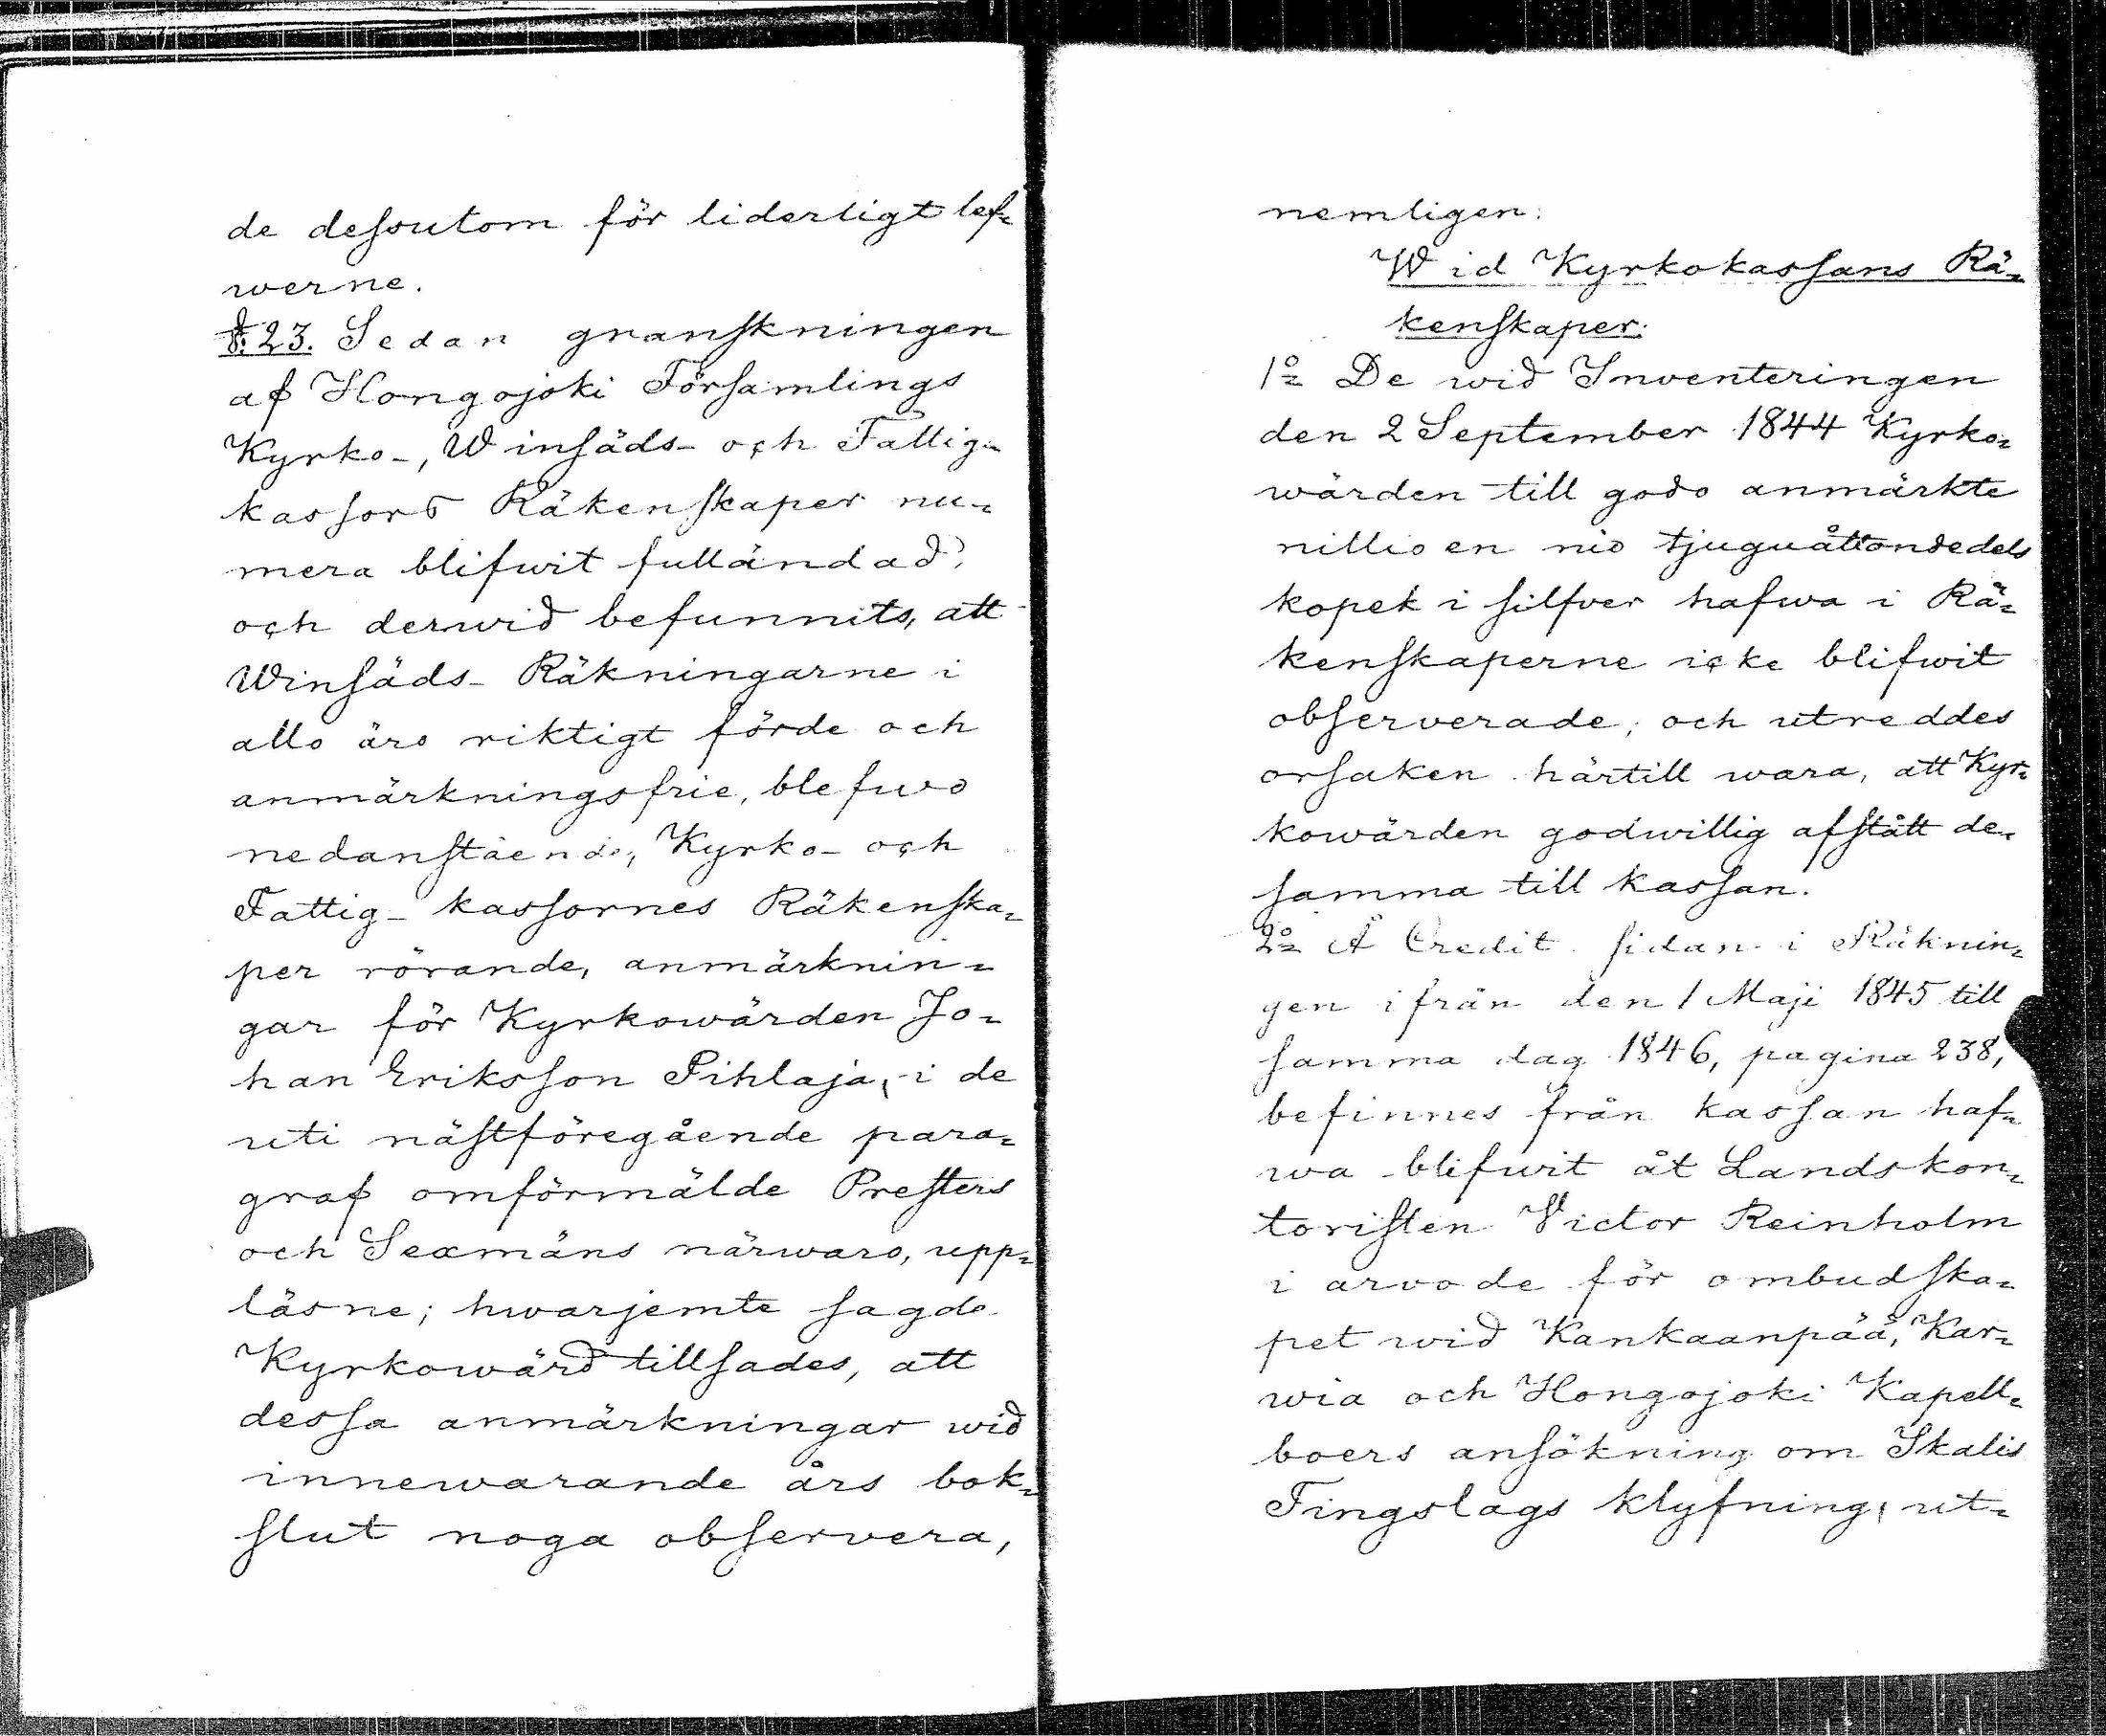 de dessutom för liderligt lef=
werne.
§. 23. Sedan granskningen
af Hongojoki Församlings
Kyrko-, Winsäds- och Fattig-
kassors Räkenskaper nu=
mera blifwit fulländad,
och derwid befunnits, att
Winsäds- Räkningarne i
allo äro riktigt förde och
anmärkningsfrie, blefwo
nedanstående, Kyrko- och
Fattig- kassornes Räkenska=
per rörande, anmärknin=
gar för Kyrkowärden Jo=
han Eriksson Pihlaja, i de
uti nästföregående para=
graf omförmälde Presters
och Sexmäns närwaro, upp=
läsne; hwarjemte sagde
Kyrkowärd tillsades, att
dessa anmärkningar wid
innewarande års bok=
slut noga observera,
nemligen:
Wid Kyrkokassans Rä=
kenskaper:
1o De wid Inventeringen
den 2 September 1844 Kyrko=
wärden till godo anmärkte
nittio en nio tjuguåttondedels
kopek i silfver hafwa i Rä=
kenskaperne icke blifwit
observerade; och utreddes
orsaken härtill wara, att Kyr=
kowärden godwillig afstått de=
samma till kassan.
2o Å Credit sidan i Räknin=
gen ifrån den 1 Maji 1845 till
samma dag 1846, pagina 238,
befinnes från kassan haf=
wa blifwit åt Landskon=
toristen Victor Reinholm
i arvode för ombudska=
pet wid Kankaanpää, Kar=
wia och Hongojoki Kapell=
boers ansökning om Ikalis
Tingslags klyfning, ut=